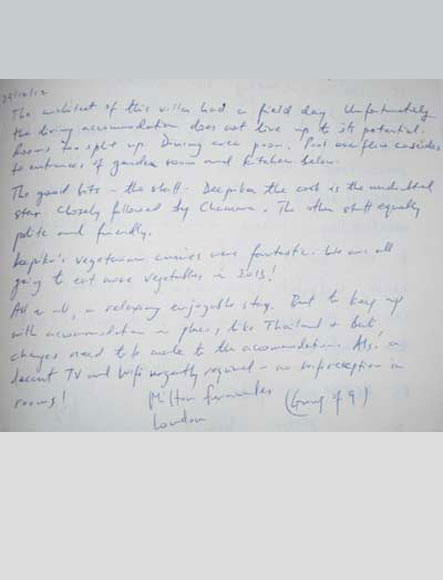 29/12/12
The architect of this villa had a field day. Unfortunately
the living accommodation does not live up to its potential.
Rooms too split up. Dining area poor. Pool overflow cascades
to entrances of garden room and kitchen below.
The good bits - the staff. Deepika the cook is the undoubted
star closely followed by Chamara. The other staff equally
polite and friendly.
Deepika's vegetarian curries were fantastic. We are all
going to eat more vegetables in 2013!
All in all, a relaxing enjoyable stay. But to keep up
with accommodation in places like Thailand & Bali,
changes need to be made to the accommodation. Also a
decent TV and wifi urgently required - no wifi reception in
rooms!
Milton Fernandes (Group of 9)
London